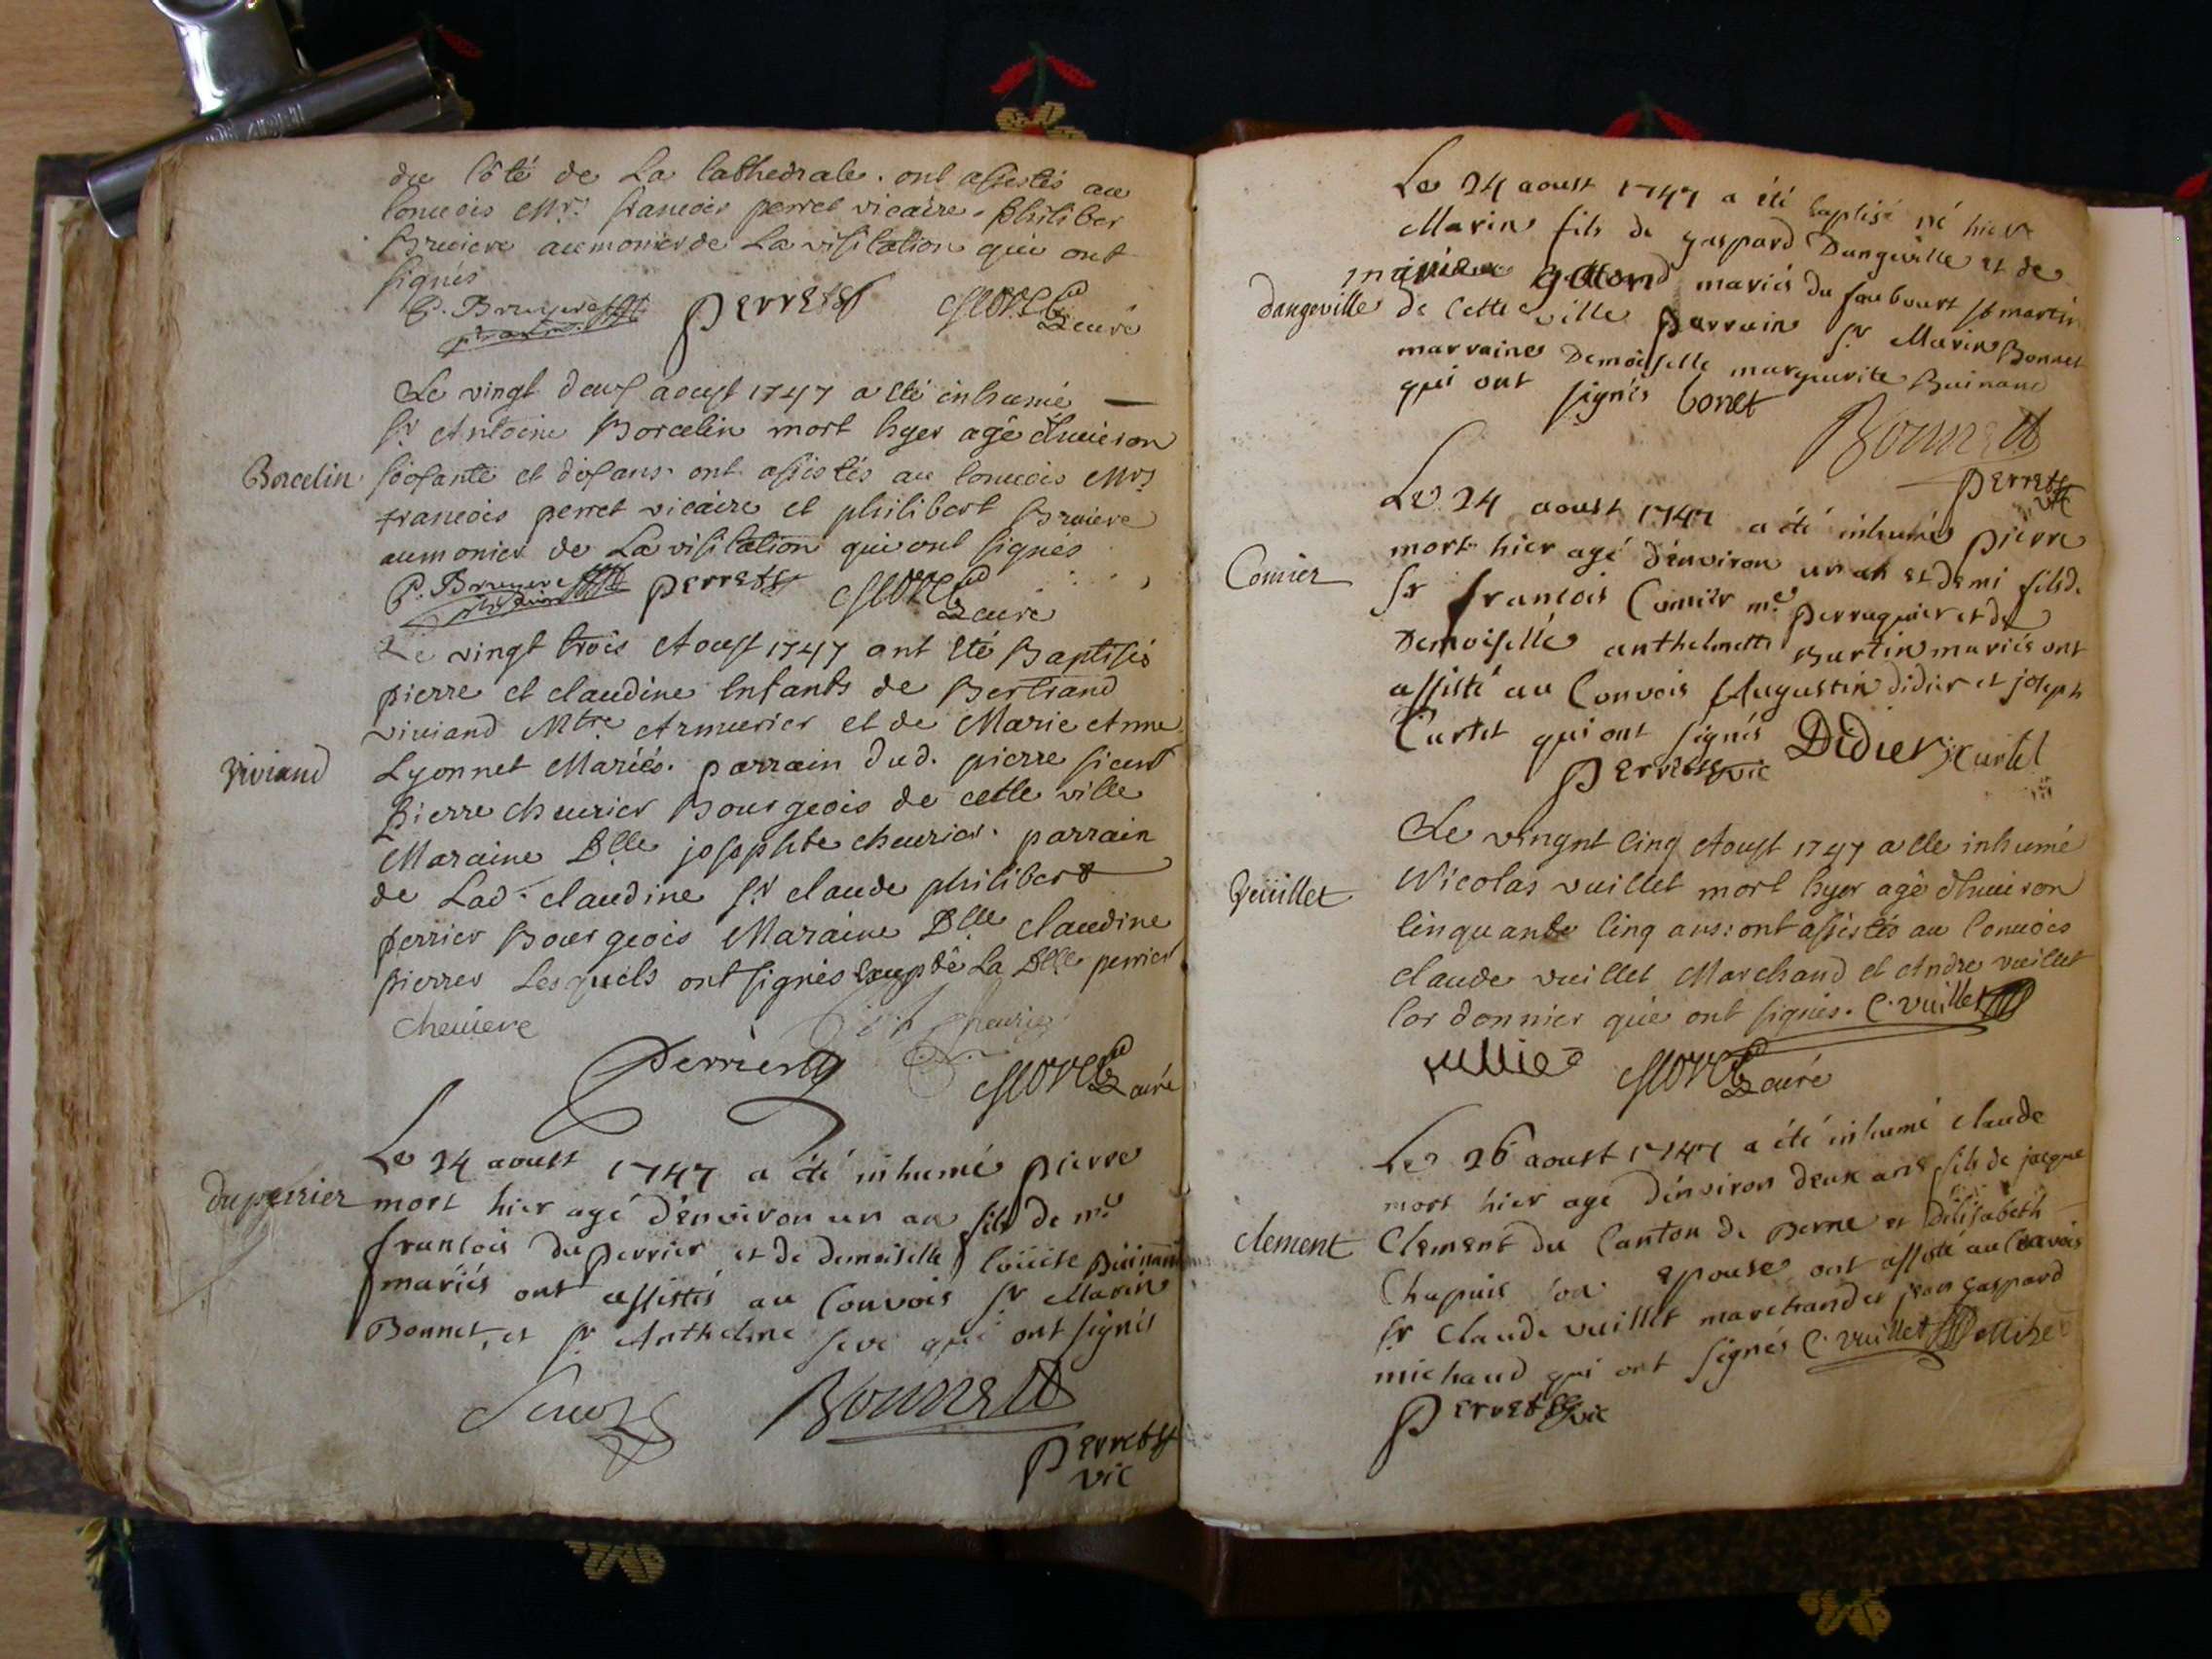 du Côté de La Cathedrale. ont assistés au
Convois Mrs. francois perret vicaire. philiber
Bruiere aumonier de La visitation qui ont
signés
P. Bruyere
perret curé
Le vingt deux aoust 1747 a eté inhumé
Sr Antoine Borcelin mort hyer agé d'huiron
Borcelin
soixante et dix ans ont assistés au Convois Mrs
francois perret vicaire et philibert Bruiere
aumonier de La visitation qui ont signés
P. Bruyere perret curé
Le vingt trois Aoust 1747 ont eté Baptisés
pierre et claudine Enfants de Bertrand
viviand Mtre Armurier et de Marie Anne
Viviand
Lyonnet Mariés. parrain dud. pierre sieur
Pierre cheurier Bourgeois de cette ville
Maraine Dlle josephte cheurier. parrain
de Lad. claudine Sr claude philibert
perrier Bourgeois Maraine Dlle claudine
pierrer Lesquels ont signés La Dlle perrier
cheuiere
Perrier curé
Le 24 aoust 1747 a été inhumé pierre
duperrier
mort hier agé d'environ un an fils de mr
francois du perrier et de demoiselle Loüise
mariés ont assistés au Convois Sr Marin
Bonnet, et Sr Anthelme seve qui ont signés
Bonnet
perret
vic
Le 24 aoust 1747 a été baptisé né hier
Marin fils de gaspard Dangeville et de
mariés du faubourt st martin
dangeville
de Cette ville Parrain Sr Marin Bonnet
marraine Demoiselle marguerite Buinand
qui ont signés bonet
Bonnet
perret
vic
Le 24 aoust 1747 a été inhumé pierre
mort hier agé d'environ un an et demi fils de
Comier
Sr francois Comier me Perruquier et de
Demoiselle anthelmette Burtin mariés ont
assisté au Convois Augustin didier et joseph
Curtet qui ont signés Didier j curtet
perret vic
Le vingnt Cinq Aoust 1747 a ete inhumé
Nicolas vuillet mort hyer agé d'huiron
Veüillet
Cinquante Cinq ans: ont assistés au Convois
claude vuillet Marchand et Andre vuillet
Cordonnier qui ont signés. C. vuillet
curé
Le 26 aoust 1747 a été inhumé claude
mort hier agé d'environ deux ans fils de jacque
clement
Clement du Canton de Berne et d'elisabeth
Chapuis son epouse ont assisté au Convois
Sr Claude vuillet marchand et jean gaspard
michaud qui ont signés C. vuillet
perret vic